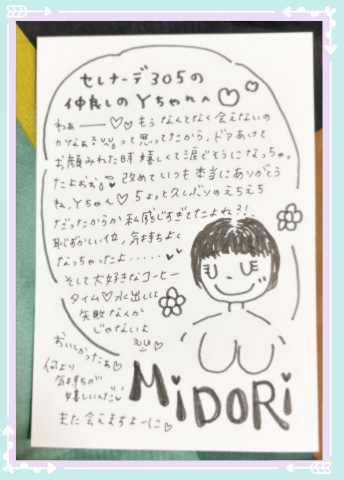 セレナーデ305の
仲良しのYちゃんへ♡♡
わぁーー♡♡もうなんとなく会えないの
かなぁ?って思ってたから、ドアあけて
お顔みれた時嬉しくて涙でそうになっちゃっ
たよぉぉ 改めていつも本当にありがとう
ね、Yちゃん♡ちょっと久しぶりのえちえち
だったからか私感じすぎてたよね?!
恥ずかしい位、気持ちよく
なっちゃったよ……♥♥
そして大好きなコーヒー
タイム♡水出しは
失敗なんか
じゃないよ
おいしかったぁ♡
何より
気持ちが
嬉しいんだ
また会えますよーに♡
MiDORi